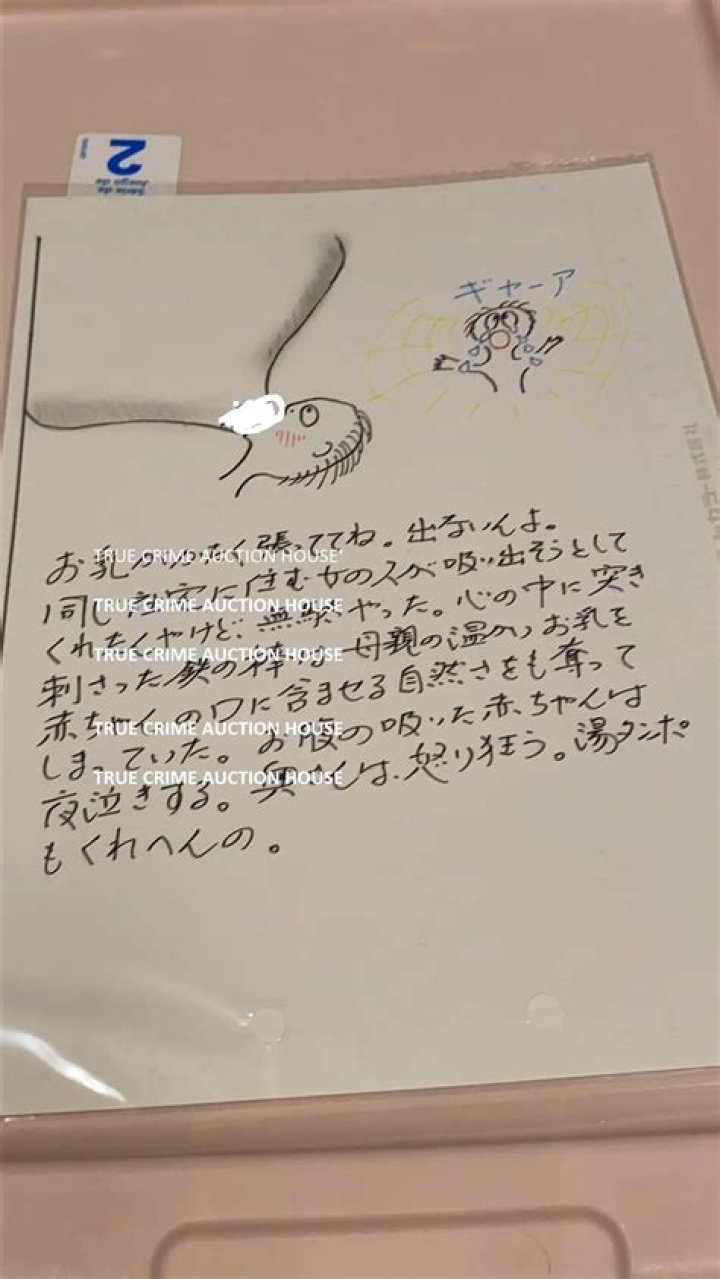 2
Série de
Juego de
ギャーア
お乳が く張っててね。出ないんよ。
TRUE CRIME AUCTION HOUSE
同じ社宅に住む女の人が吸い出そうとして
TRUE CRIME AUCTION HOUSE
くれたんやけど、無駄やった。心の中に突き
TRUE CRIME AUCTION HOUSE
刺さった鉄の棒は、母親の温かいお乳を
赤ちゃんの口に含ませる自然さをも奪って
TRUE CRIME AUCTION HOUSE
しまっていた。お腹の吸いた赤ちゃんは
TRUE CRIME AUCTION HOUSE
夜泣きする。奥さんは、怒り狂う。湯タンポ
もくれへんの。